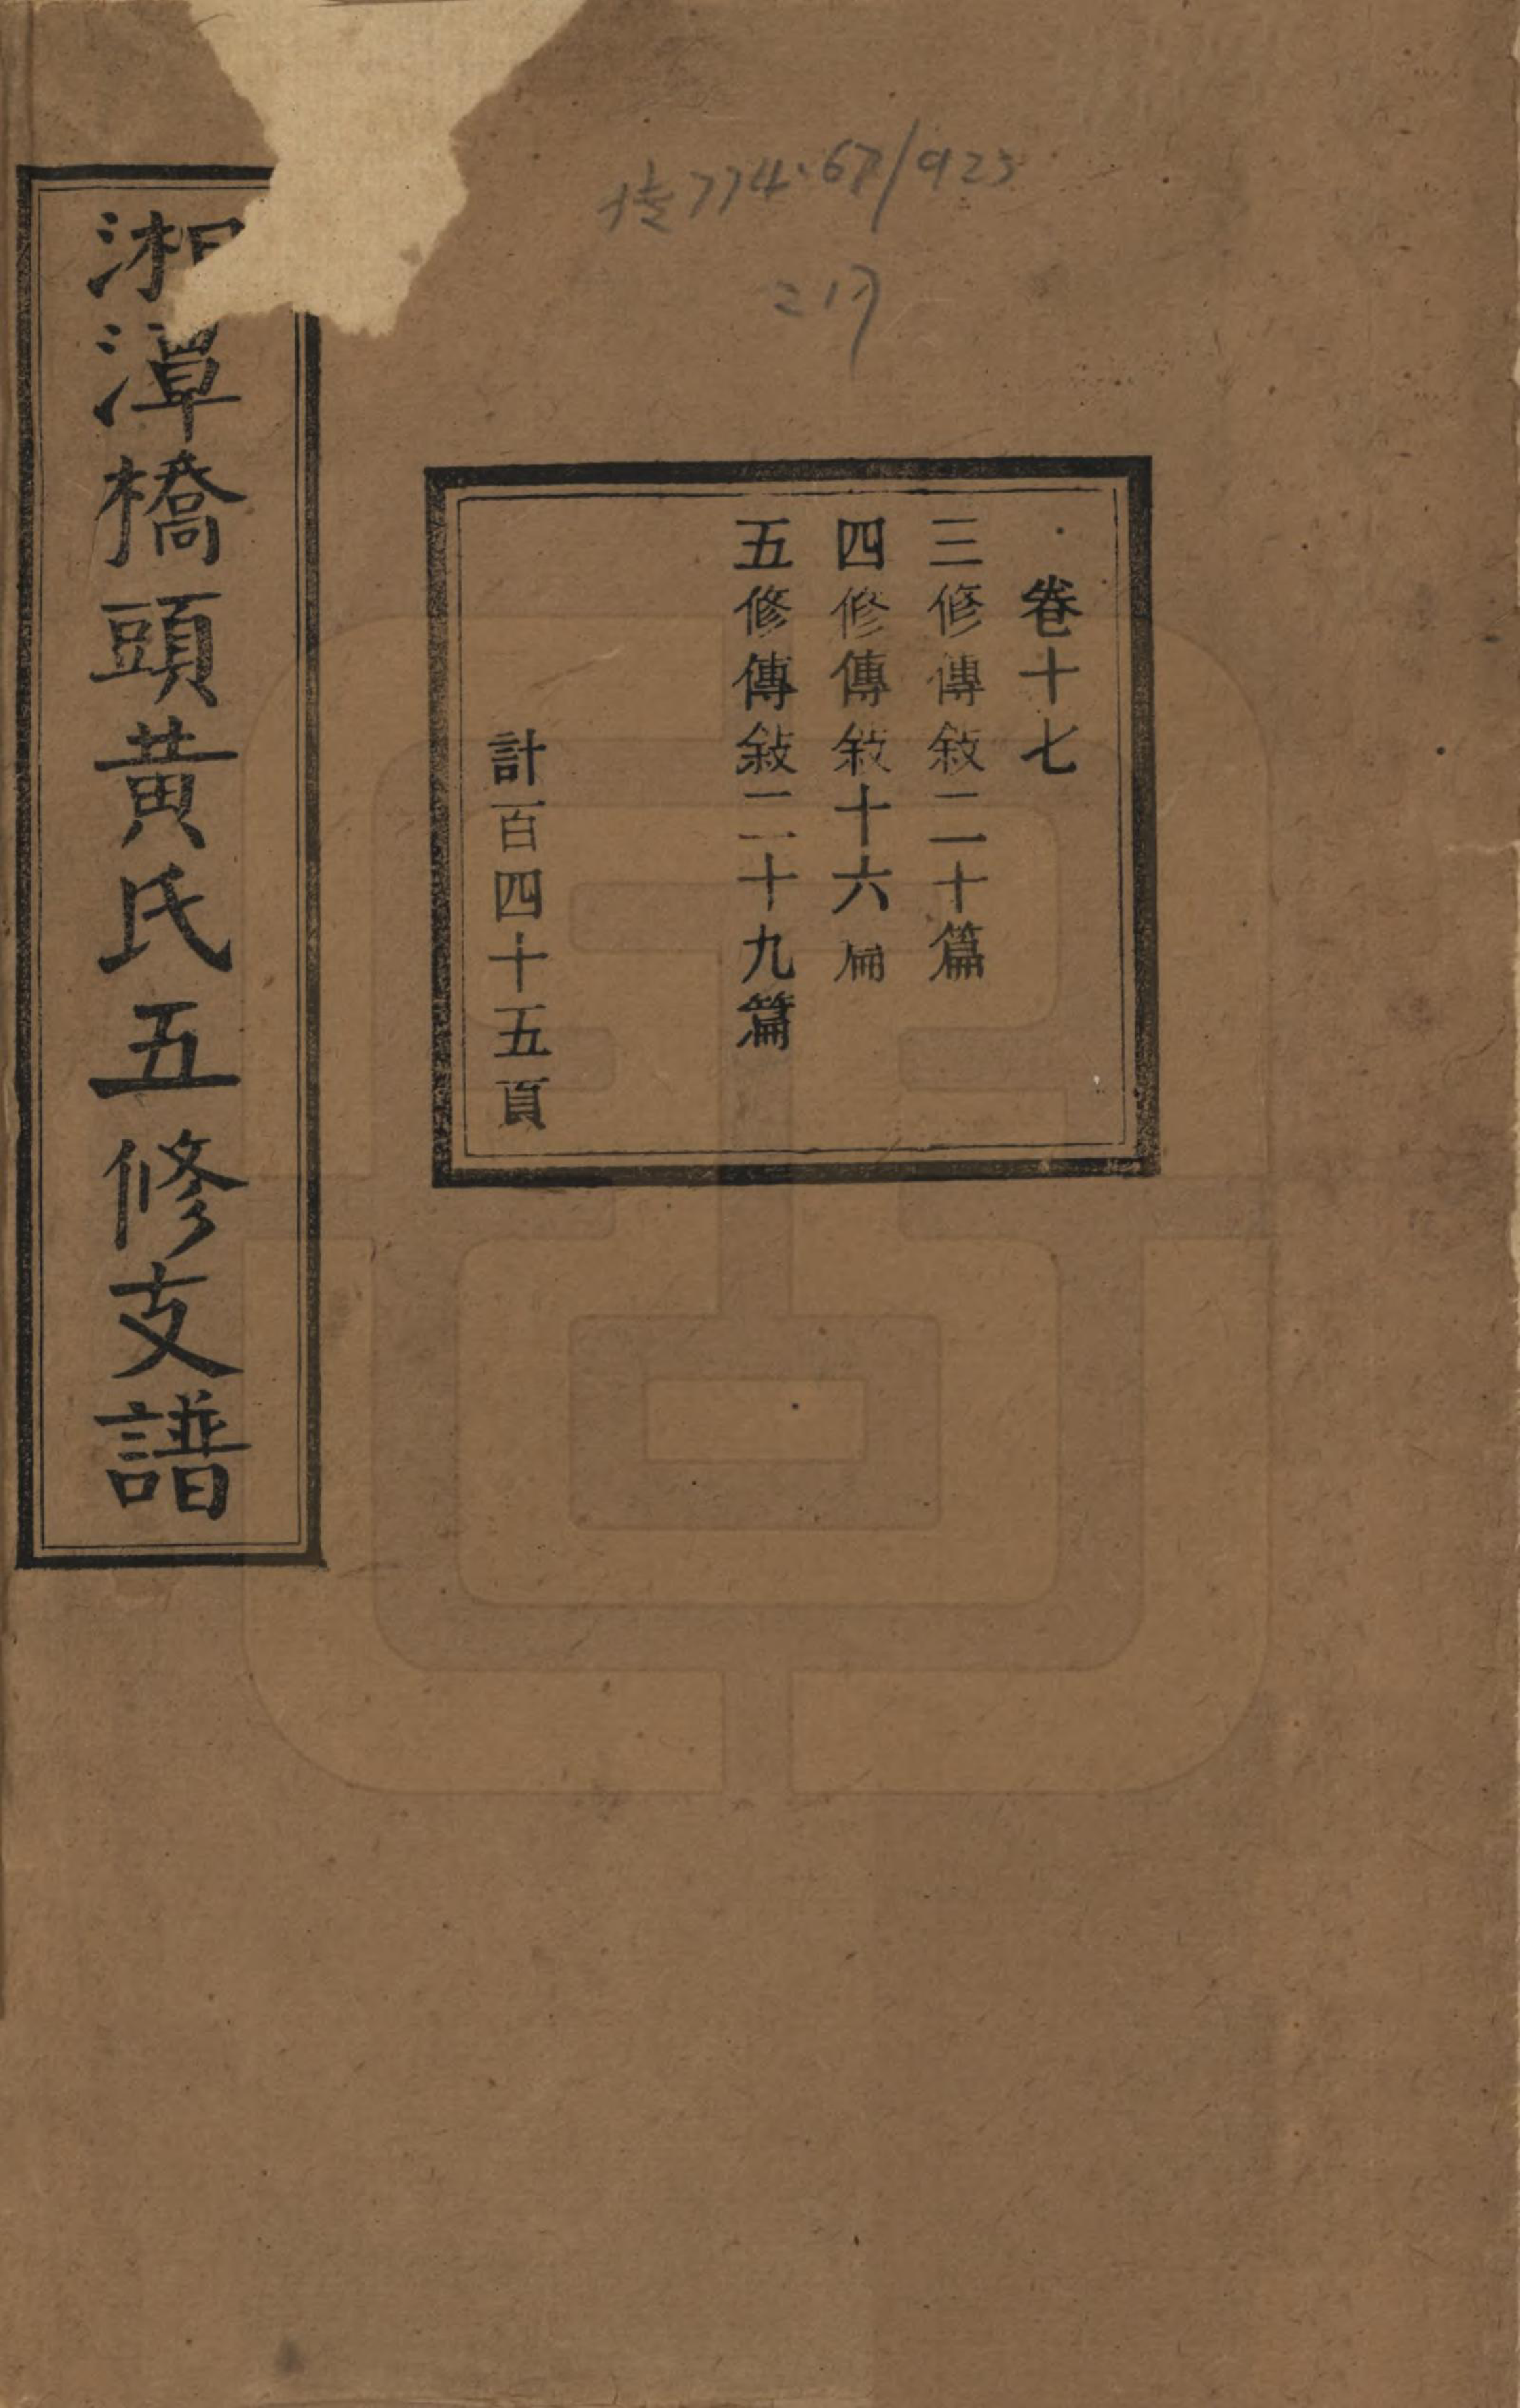 卷十七
三修傳敍二十篇
四修傳敍十六篇
五修傳敍二十九篇
計百四十五頁
湘潭橋頭黃氏五修支譜
774.67/923